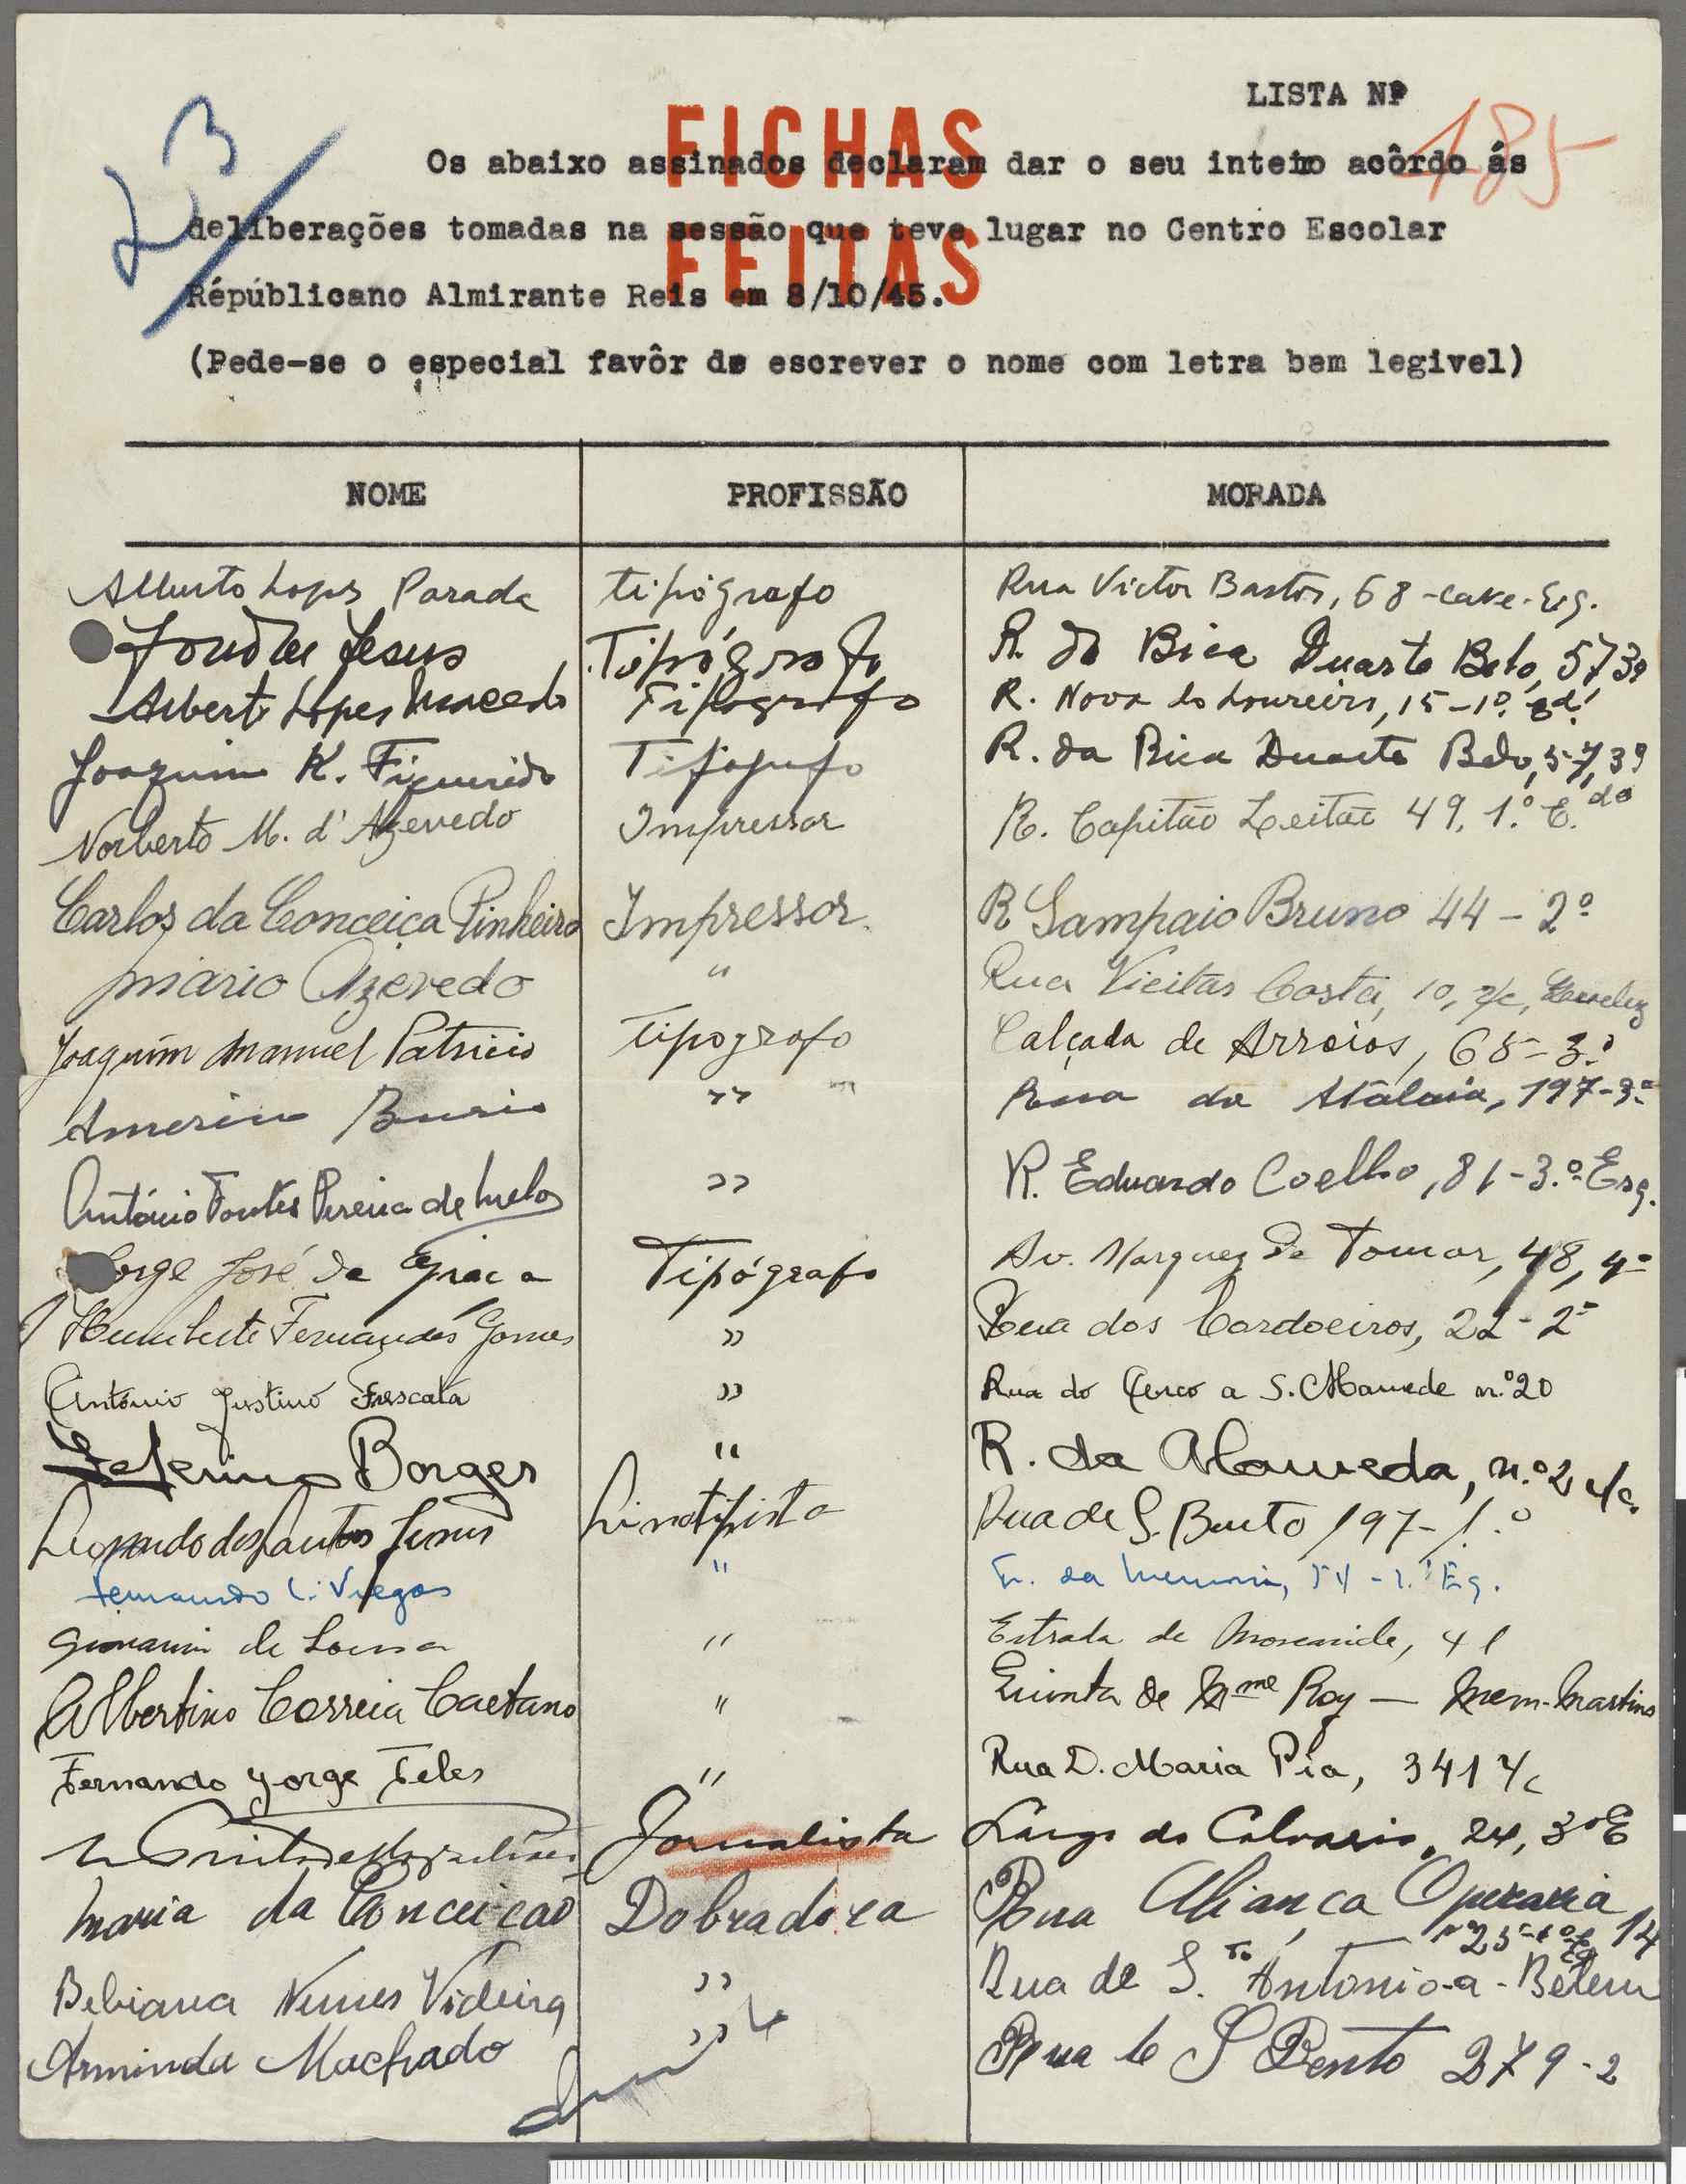 LISTA Nº
185
23
FICHAS
FEITAS
Os abaixo assinados declaram dar o seu inteiro acôrdo ás
deliberações tomadas na sessão que teve lugar no Centro Escolar
Républicano Almirante Reis em 8/10/45.
(Pede-se o especial favôr de escrever o nome com letra bem legivel)
NOME PROFISSÃO MORADA
Alberto Lopes Parada tipógrafo Rua Victor Bastos, 68-cave-Esq.
Jesus Tipógrafo R. da Bica Duarte Belo, 57 3º
Alberto Lopes Macedo Tipografo R. Nova do Loureiro, 15-1º
Joaquim K. Figueirido Tipógrafo R. da Bica Duarte Belo, 57, 3º
Norberto M. d'Azevedo Impressor R. Capitão Leitão 49, 1.º E.do
Carlos da Conceiça Pinheiro Impressor R Sampaio Bruno 44-2º
Mário Azevedo " Rua Vieitas Costa, 10, r/c,
Joaquim Manuel Patricio tipografo Calçada de Arroios, 65-3.º
Americo " Rua da Atalaia, 197-3º
António Fontes Pereira de Melo " R. Eduardo Coelho, 81-3.º Esq.
Jorge José da Graça Tipógrafo Av. Marquez de Tomar, 48, 4º
Humberto Fernandes Gomes " Rua dos Cordoeiros, 22-2º
António Justino Frescata " Rua do Cerco a S. Mamede n.º 20
Zeferino Borges " R. da Alameda, n.º 2 r/c.
Leonardo dos Santos Linotipista Rua de S. Bento 197-1.º
Fernando C. Viegas " Esq.
Giovanni de Sousa " Estrada de Moscavide, 41
Albertino Correia Caetano " Quinta de Mme Roy — Mem-Martins
Fernando Jorge Teles " Rua D. Maria Pia, 341 r/c
Jornalista Largo do Calvario, 24, 3º E
Maria da Conceição Dobradora Rua Aliança Operaria 14
Bebiana Nunes Videira " Rua de S.to Antonio-a-Belem nº 25-1º E
Arminda Machado " Rua de S Bento 279-2